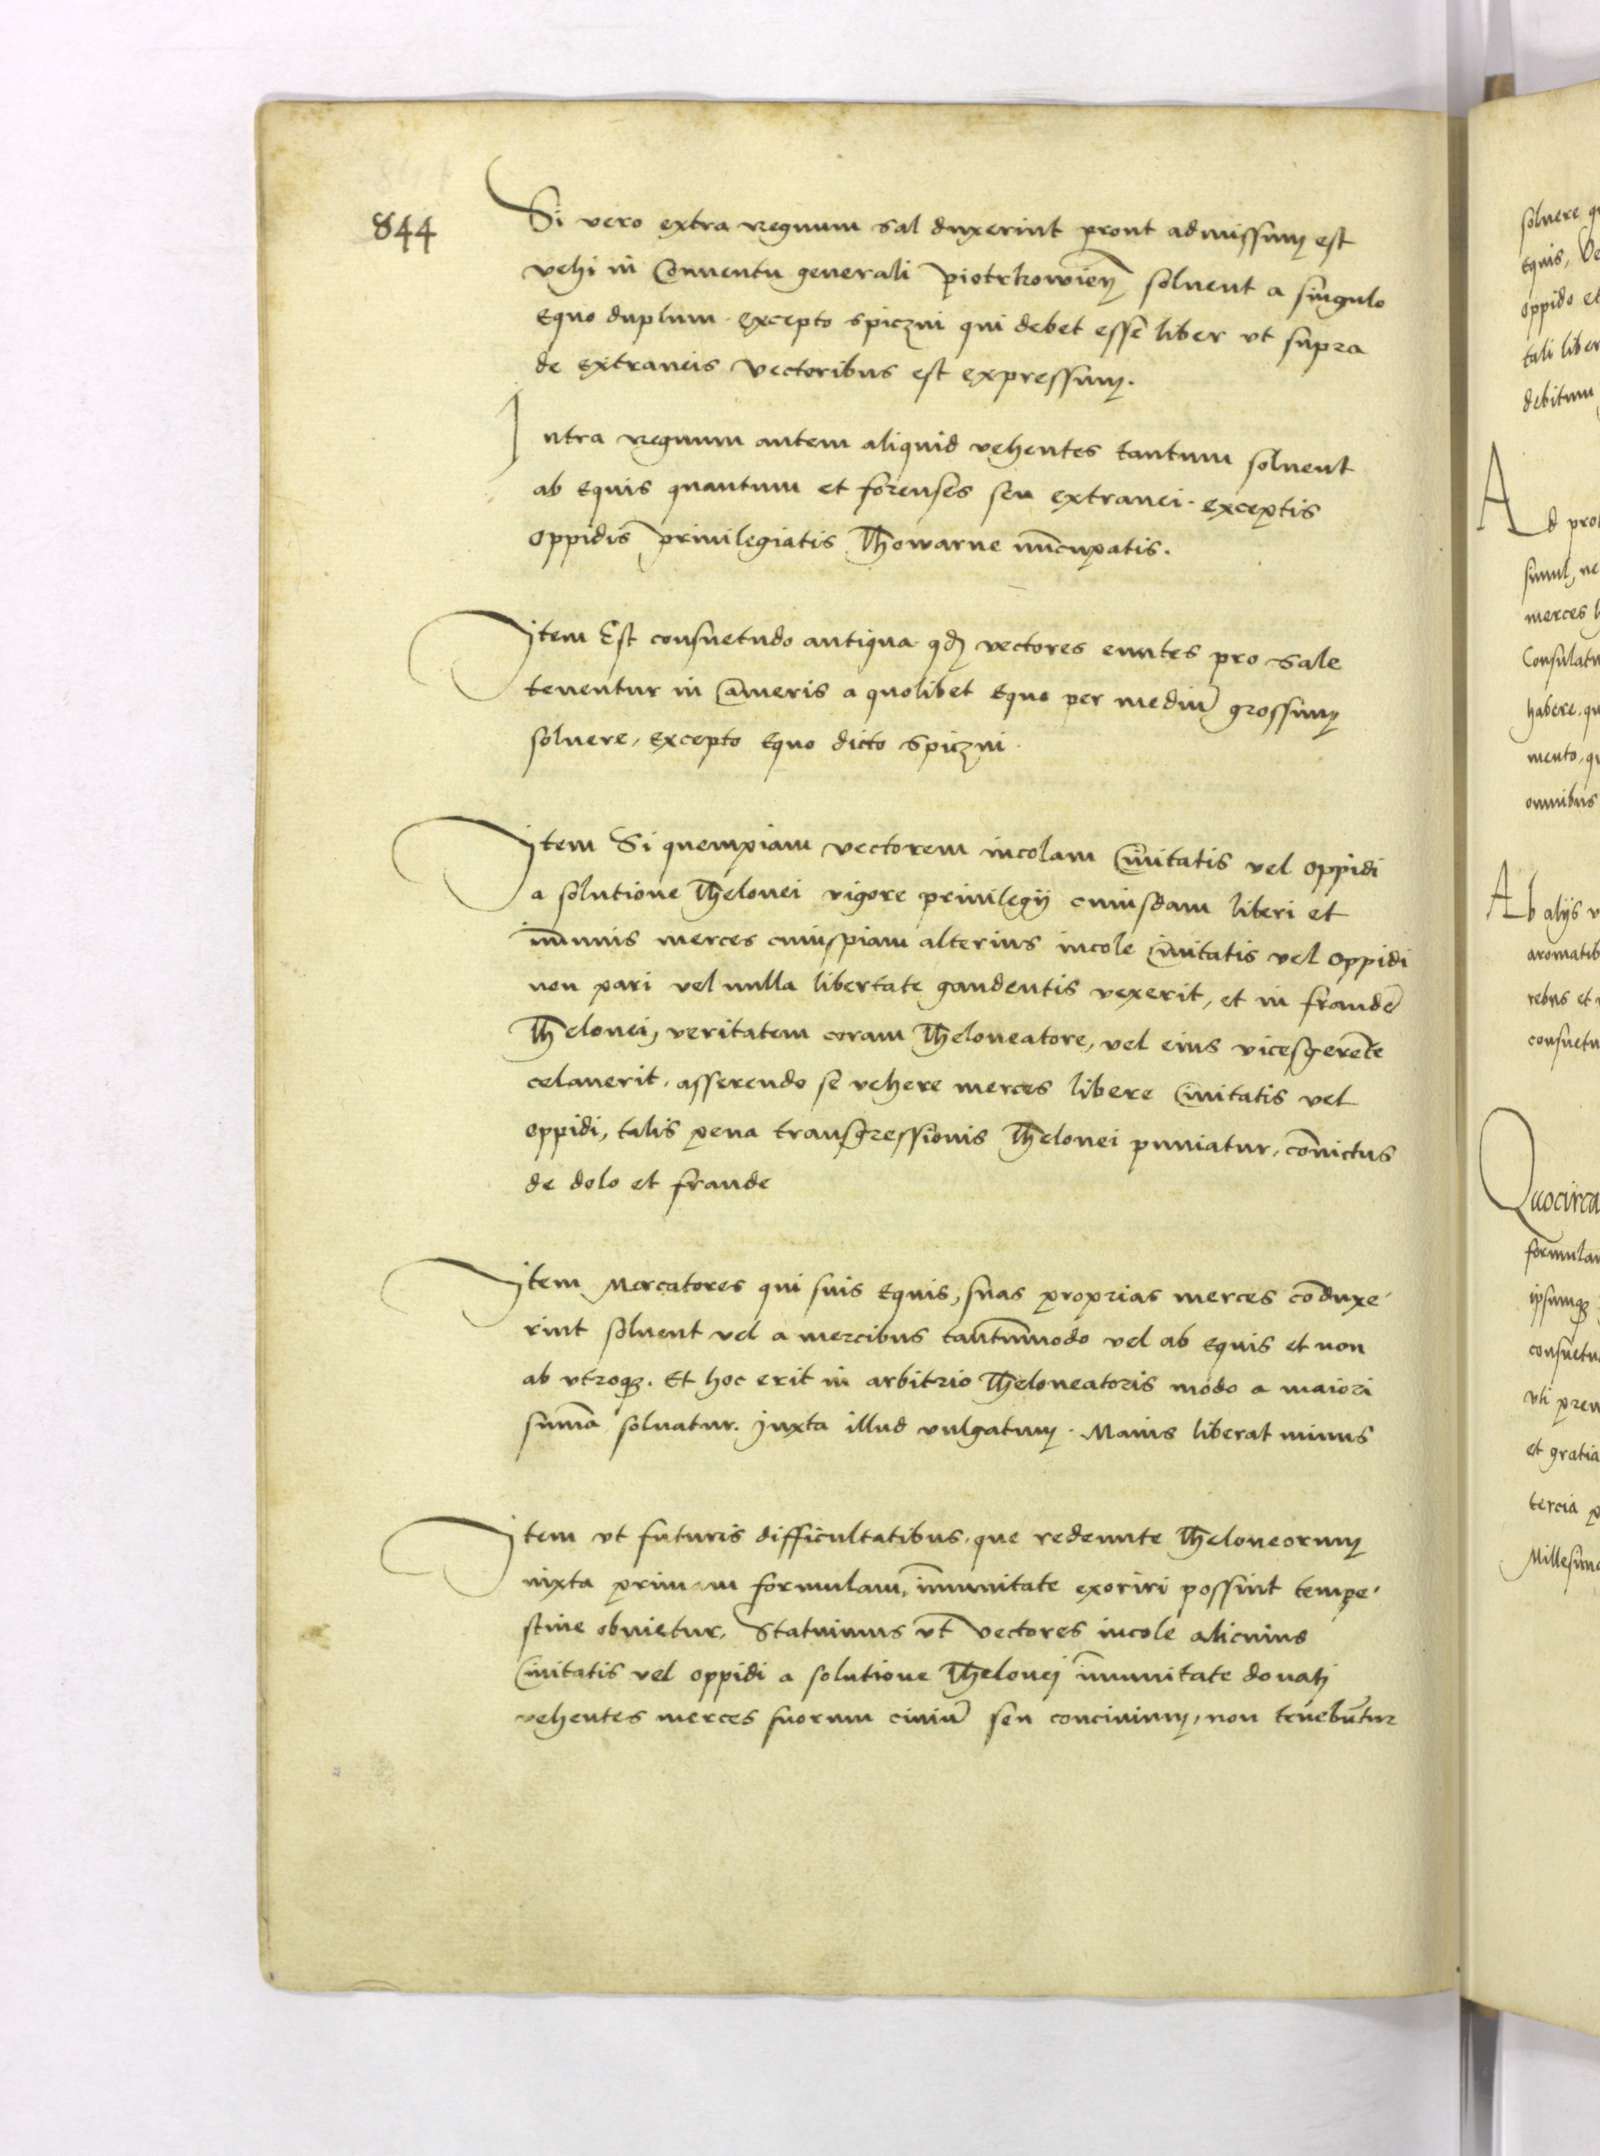 844
Si vero extra regnum sal duxerint prout admissum est
vehi in Conuentu generali piotrkowień soluent a singulo
Equo duplum. excepto spiczni qui debet esse liber vt supra
de extraneis vectoribus est expressum.
Intra regnum autem aliquid vehentes tantum soluent
ab Equis quantum et forenses seu extranei. exceptis
oppidis priuilegiatis Thowarne nūcupatis.
Item Est consuetudo antiqua qđ vectores euntes pro sale
tenentur in Cameris a quolibet Equo per mediū grossum
soluere, excepto Equo dicto spiczni.
Item Si quempiam vectorem incolam Ciuitatis vel oppidi
a solutione Thelonei vigore priuilegij cuiusdam liberi et
im̄unis merces cuiuspiam alterius incole Ciuitatis vel oppidi
non pari vel nulla libertate gaudentis vexerit, et in fraudē
Thelonei, veritatem coram Theloneatore, vel eius vicesgerēte
celauerit, asserendo se vehere merces libere Ciuitatis vel
oppidi, talis pena transgressionis Thelonei puniatur, cōuictus
de dolo et fraude
Item Mercatores qui suis Equis, suas proprias merces cōduxe-
rint soluent vel a mercibus tantum̄odo vel ab Equis et non
ab vtroqz. Et hoc erit in arbitrio Theloneatoris modo a maiori
sum̄a soluatur. Juxta illud vulgatum. Maius liberat minus
Item vt futuris difficultatibus, que redeunte Theloneorum
iuxta primam formulam, im̄unitate exoriri possint tempe-
stiue obuietur, Statuimus vt vectores incole alicuius
Ciuitatis vel oppidi a solutione Thelonej im̄unitate donati
vehentes merces suorum ciuiū seu conciuium, non tenebūtur
soluere
Equis,
oppido et
tali liber
debitum
Ad
simul,
merces
Consulatu
habere.
mento,
omnibus
Ab alijs
aromatib
rebus et
consuetu
Quocirca
formulam
ipsumqz
consuetu
vti
et gratia
tercia
Millesimo